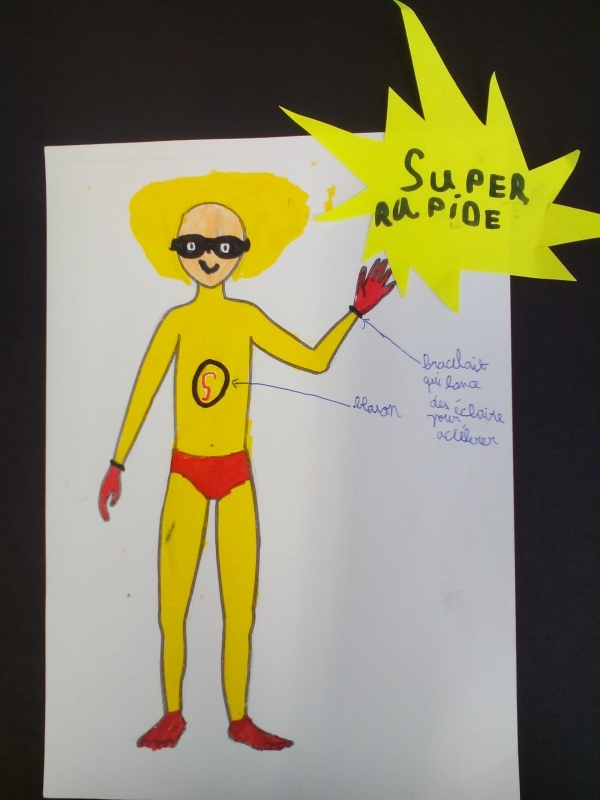 SUPER
RAPIDE
S
bracelait
qui lance
des éclaire
pour
accélérer
blason